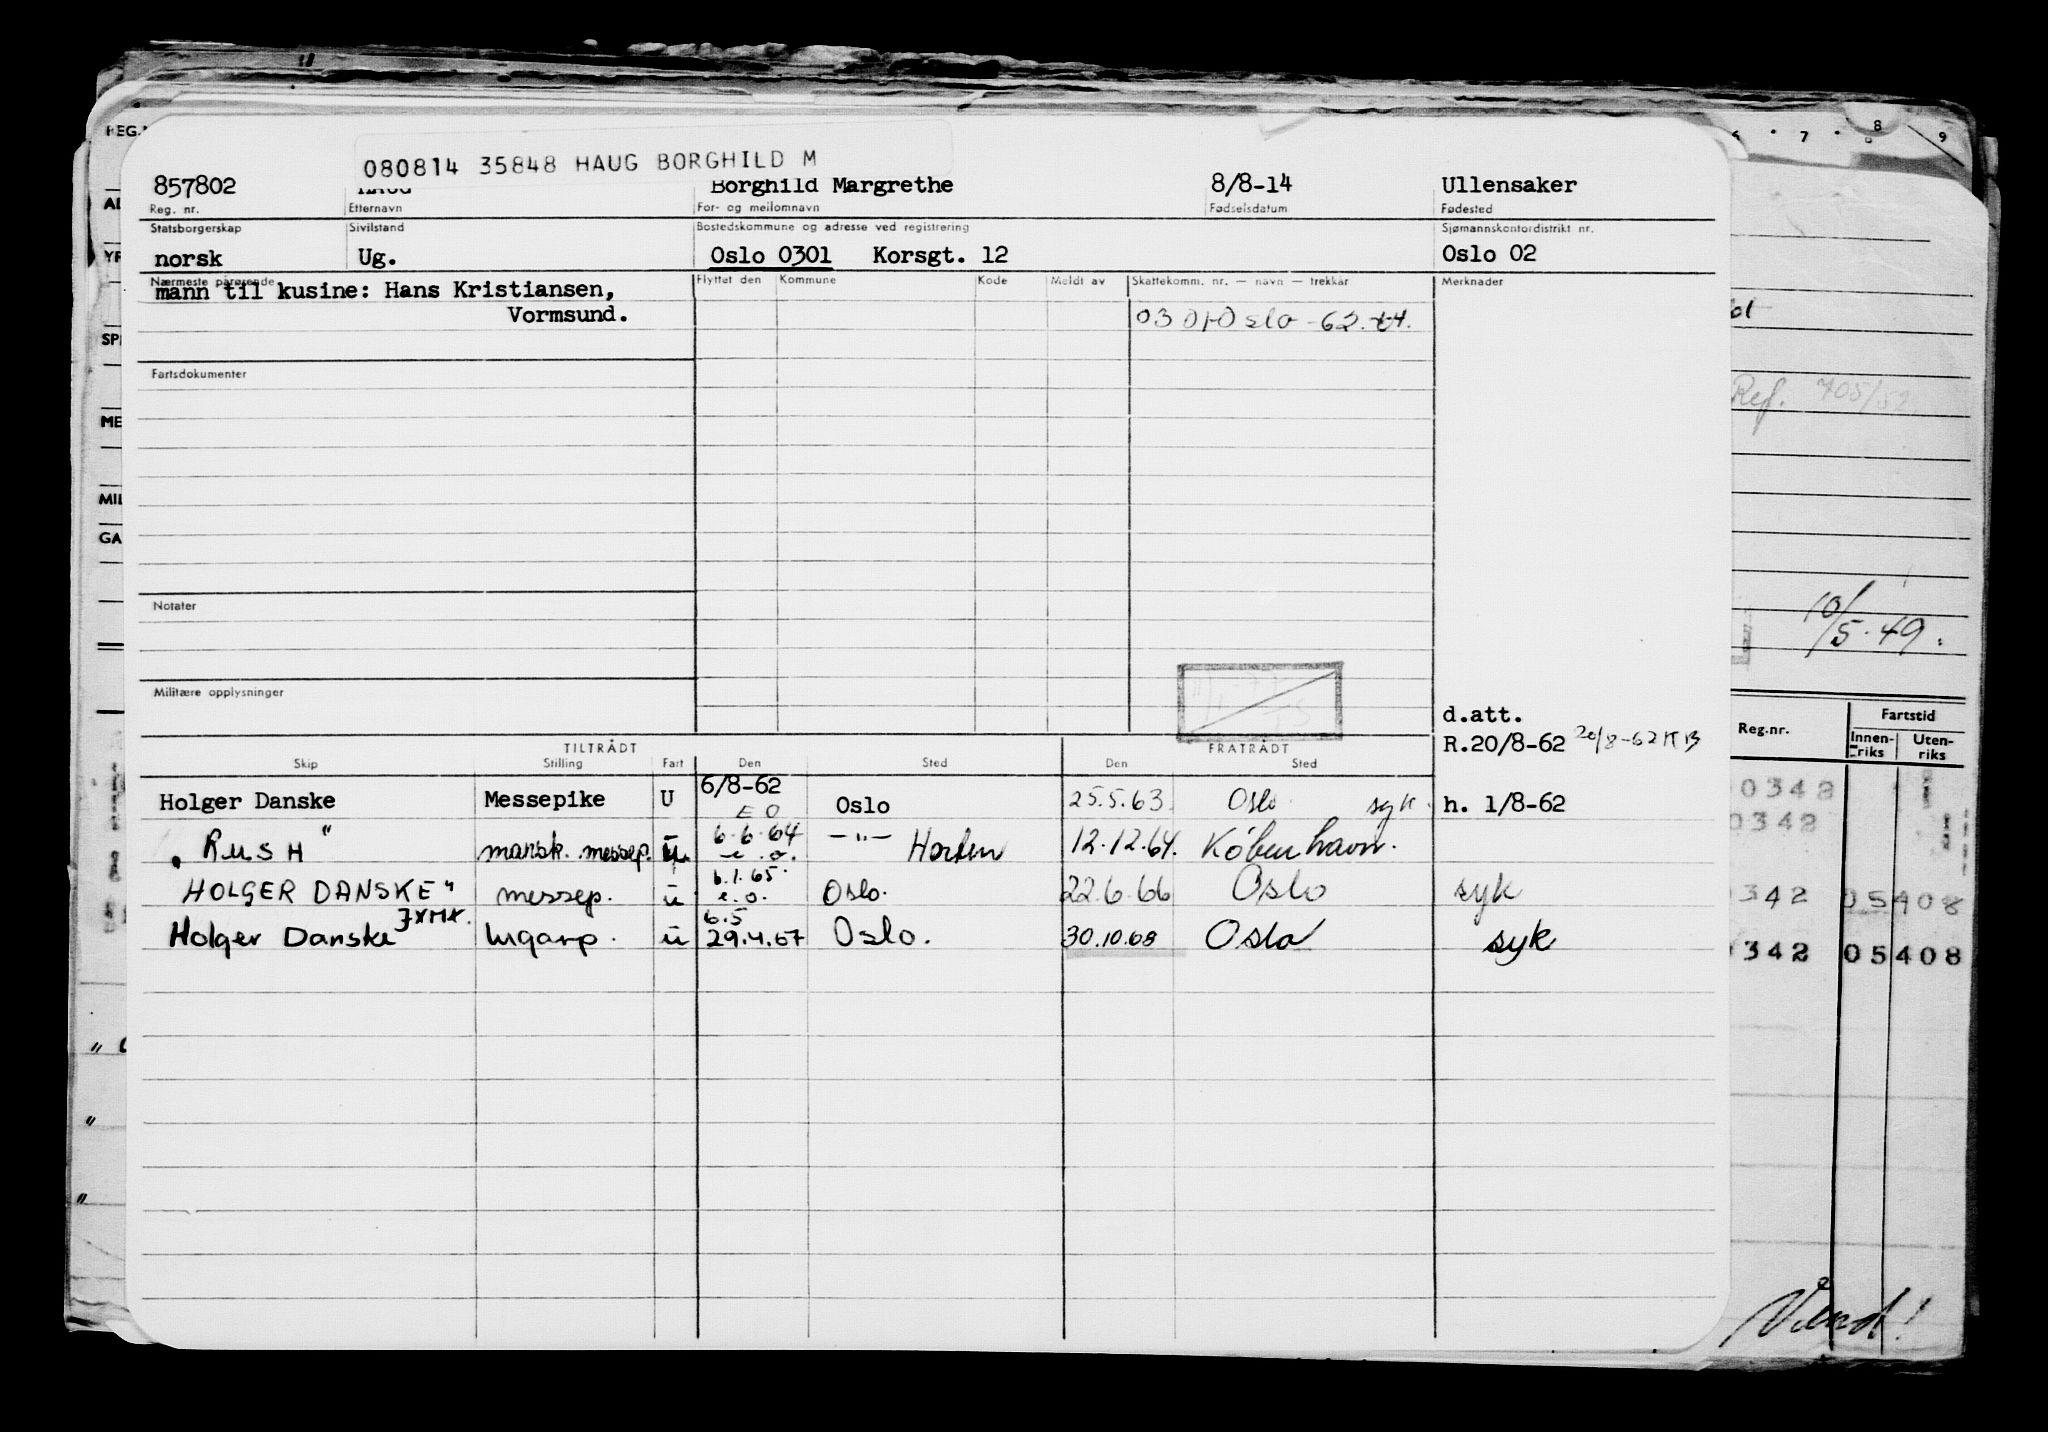 080814 35848 HAUG BORGHILD M
857802 HAUG Borghild Margrethe 8/8-14 Ullensaker
Reg. nr. Etternavn For- og mellomnavn Fødselsdatum Fødested
Statsborgerskap Sivilstand Bostedskommune og adresse ved registrering Sjømannskontordistrikt nr.
norsk Ug. Oslo 0301 Korsgt. 12 Oslo 02
Nærmeste pårørende Flyttet den Kommune Kode Meldt av Skattekomm. nr. — navn — trekkår Merknader
mann til kusine: Hans Kristiansen,
Vormsund. 0301 Oslo -62. 64.
Fartsdokumenter
Notater
Militære opplysninger
d.att.
R.20/8-62 20/8-62 KB
TILTRÅDT FRATRÅDT
Skip Stilling Fart Den Sted Den Sted
Holger Danske Messepike U 6/8-62 EO Oslo 25.5.63. Oslo syk. h. 1/8-62
"RUSH" mansk. messep. u 6.6.64 e.o. —"— Horten 12.12.64. København.
HOLGER DANSKE" messep. u 6.1.65. e.o. Oslo. 22.6.66 Oslo syk
Holger Danske JXMX. lugarp. u 6.5 29.4.67 Oslo. 30.10.68 Oslo syk
REG.
YR
SP
ME
MIL
GA
6 7 8 9
Ref. 705/52
10/5.49.
Reg.nr. Fartstid
Innen-riks Uten-riks
0342
0342
342 05408
342 05408
Vend!